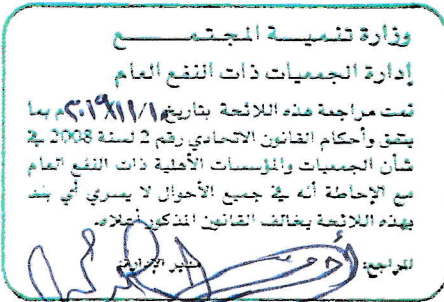 وزارة تنمية المجتمع
إدارة الجمعيات ذات النفع العام
تمت مراجعة هذه اللائحة بتاريخ ٢٠١٩/١١/١٠م بما
يتفق وأحكام القانون الاتحادي رقم 2 لسنة 2008 في
شأن الجمعيات والمؤسسات الأهلية ذات النفع العام
مع الإحاطة أنه في جميع الأحوال لا يسري أي بند
بهذه اللائحة يخالف القانون المذكور أعلاه.
المراجع: مدير الإدارة: